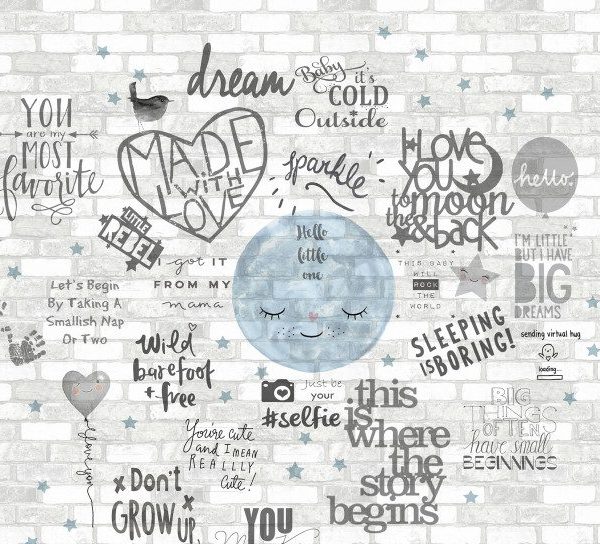 dream
Baby
it's
COLD
Outside
YOU
are my
MOST
favorite
MADE
WITH
LOVE
sparkle
I LOVE
YOU
to the moon
& back
hello.
LITTLE
REBEL
I got it
FROM MY
mama
Hello
little
one
THIS BABY
WILL
ROCK
THE
WORLD
I'M LITTLE
BUT I HAVE
BIG
DREAMS
Let's Begin
By Taking A
Smallish Nap
Or Two
SLEEPING
IS BORING!
sending virtual hug
loading...
Wild
barefoot
+ free
Just be
your
#selfie
this
is
where
the
story
begins
BIG
THINGS
OFTEN
have small
BEGINNINGS
I love you
You're cute
and I MEAN
REALLLY
Cute!
x Don't x
GROW UP
YOU